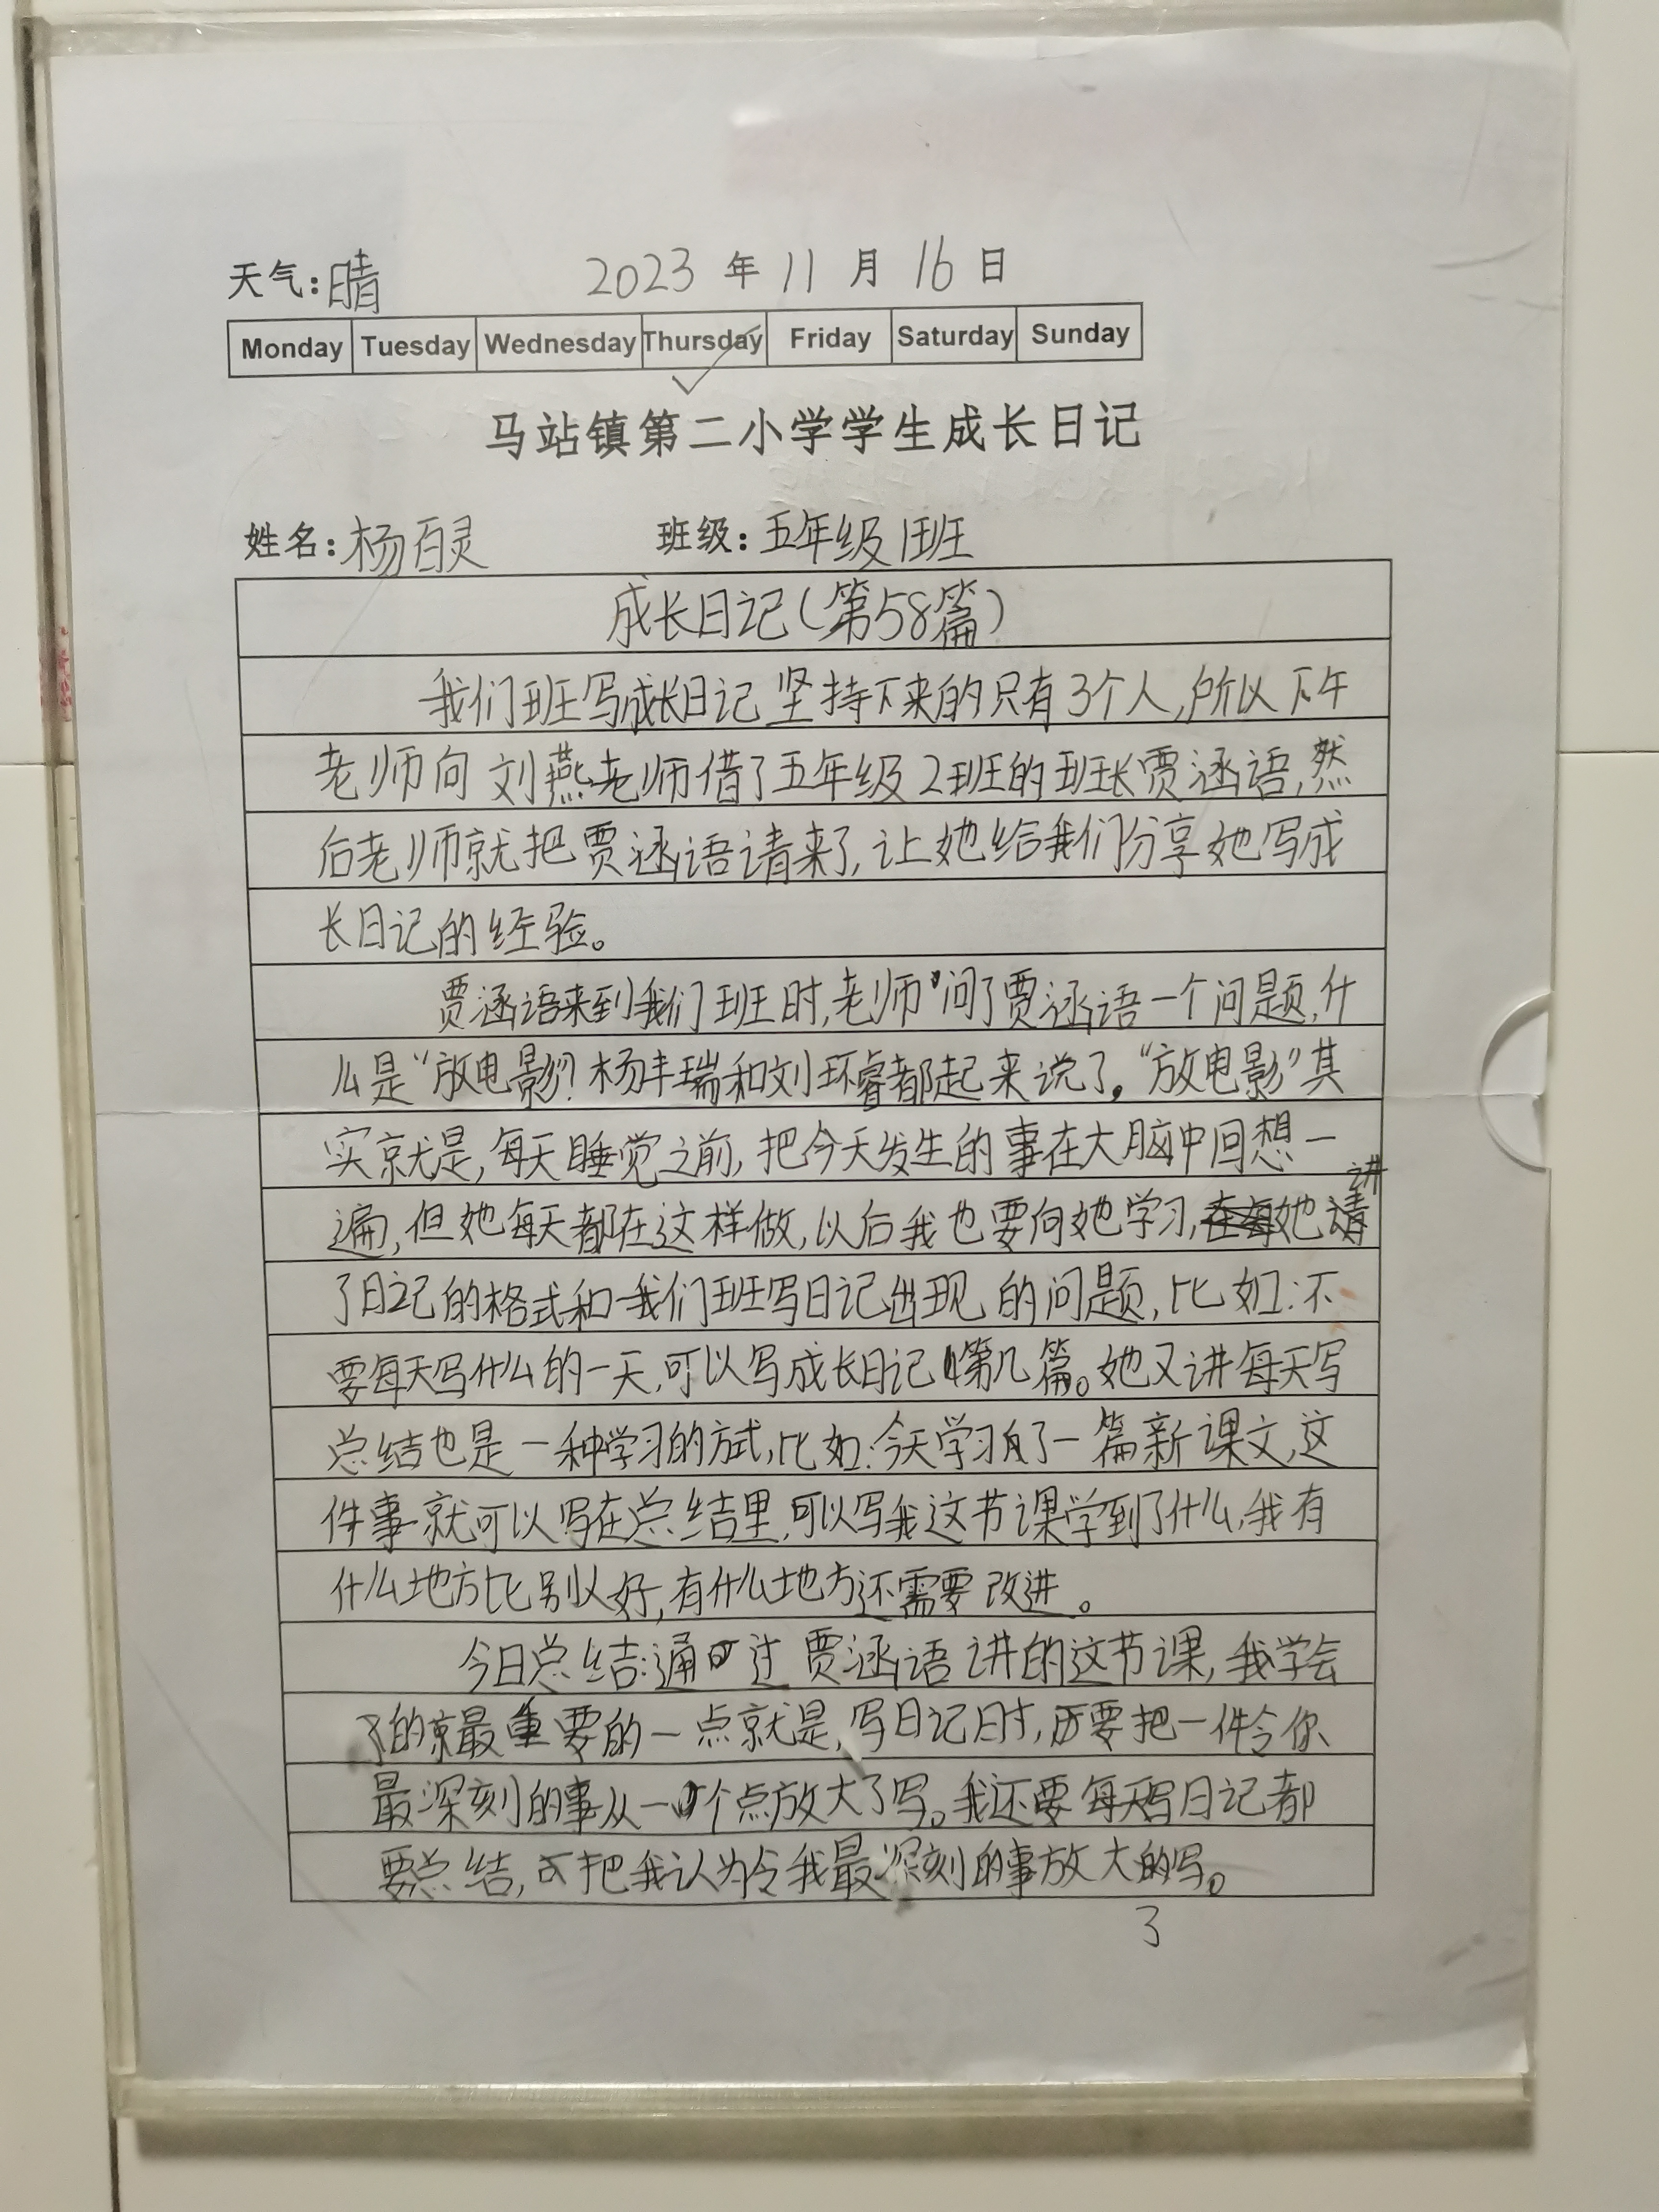 天气:晴 2023 年 11 月 16 日
Monday Tuesday Wednesday Thursday Friday Saturday Sunday
马站镇第二小学学生成长日记
姓名:杨百灵 班级:五年级1班
成长日记(第58篇)
我们班写成长日记坚持下来的只有3个人,所以下午
老师向刘燕老师借了五年级2班的班长贾涵语,然
后老师就把贾涵语请来了,让她给我们分享她写成
长日记的经验。
贾涵语来到我们班时,老师问了贾涵语一个问题,什
么是“放电影”?杨丰瑞和刘环睿都起来说了。“放电影”其
实就是,每天睡觉之前,把今天发生的事在大脑中回想一
遍,但她每天都在这样做,以后我也要向她学习,她讲
了日记的格式和我们班写日记出现的问题,比如:不
要每天写什么的一天,可以写成长日记第几篇。她又讲每天写
总结也是一种学习的方式,比如:今天学习了一篇新课文,这
件事就可以写在总结里,可以写我这节课学到了什么,我有
什么地方比别人好,有什么地方还需要改进。
今日总结:通过贾涵语讲的这节课,我学会
了的最重要的一点就是,写日记时,要把一件令你
最深刻的事从一个点放大了写。我还要每天写日记都
要总结,把我认为令我最深刻的事放大的写。
3